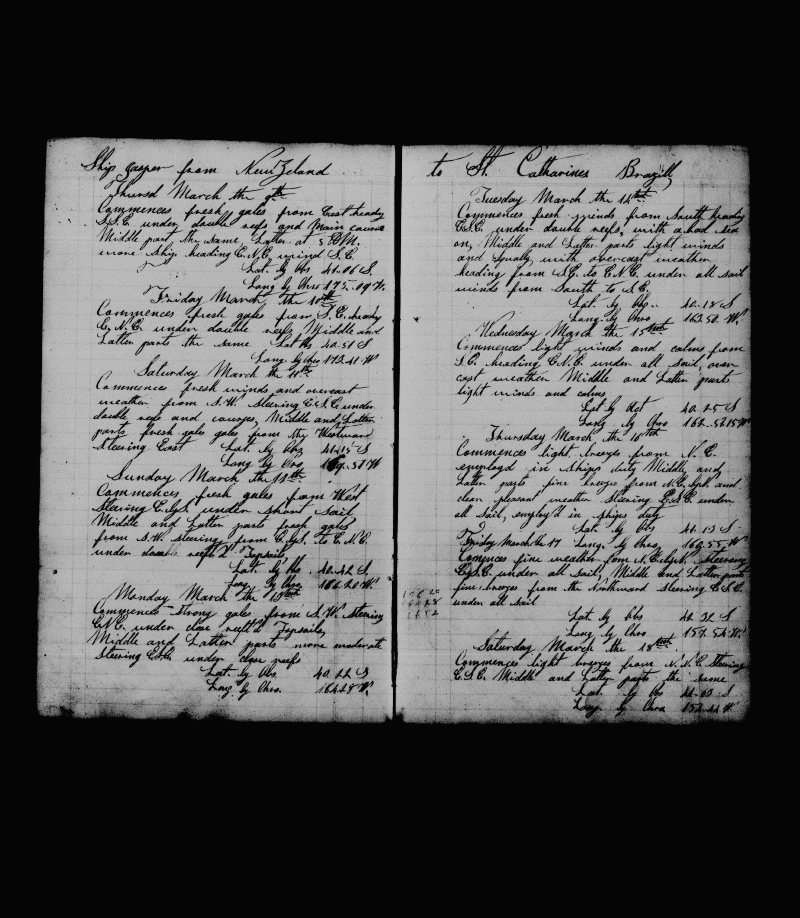 Ship Jasper from New Zeland
Thursd March the 9th
Commences fresh gales from East heady
S.S.E. under double reefs and Main course
Middle part the Same Latter at 5 P.M.
more Ship heading E.N.E. wind S.E.
Lat. by Obs 41.06 S.
Long by Chro 175.09 W.
Friday March the 10th
Commences fresh gales from S.E. heady
E.N.E. under double reefs Middle and
Latter parts the same Lat Obs 40.51 S
Long. by Chro 172.41 W
Saturday March the 11th
Commences fresh winds and overcast
weather from S.W. Steering E.S.E. under
double reefs and courses, Middle and Latter
parts fresh gales gales from the Westward
Steering East Lat. by Obs 41.15 S
Long by Chro 169.51 W
Sunday March the 12th
Commences fresh gales from West
Steering E. by S. under short sail
Middle and Latter parts fresh gales
from S.W. steering from E. by S. to E.N.E.
under double reef'd Topsails,
Lat. by Obs 40.42 S.
Long. by Chro. 166.20 W.
Monday March the 13th
Commences Strong gales from S.W. Steering
E.N.E. under close reef'd Topsails,
Middle and Latter parts more moderate
Steering E.S.E. under close reefs
Lat. by Obs. 40.22 S
Long. by Chro. 164.28 W.
to St. Catharines Brazill,
Tuesday March the 14th
Commences fresh winds from South heading
E.S.E. under double reefs, with a bad sea
on, Middle and Latter parts light winds
and Squaly, with overcast weather
heading from S.E. to E.N.E. under all sail
winds from South to S.E.
Lat by Obs. 40.18 S
Long. by Chro 163.50 W.
Wednesday March the 15th
Commences light winds and calms from
S.E. heading E.N.E. under all sail, over
cast weather Middle and Latter parts
light winds and calms
Lat by Act 40.25 S
Long by Chro 162.52.15 W
Thursday March, the 16th
Commences light breezes from N.E.
employ'd in Ships duty Middle, and
Latter parts fine breezes from N.E. by N. and
clear pleasant weather Steering E.S.E. under
all sail, employ'd in ships duty
Lat. by Obs 41.13 S
Friday March the 17 Long. by Chro. 160.55 W
Comences fine weather from N.E. by N. Steering
E. by S.E. under all sail, Middle and Latter parts
fine breezes from the Northward Steering E.S.E.
under all sail
Lat. by Obs 41.32 S
Long. by Chro 157.54 W.
Saturday March the 18th
Commences light breezes from N.N.E. Steering
E.S.E. Middle and Latter parts the same
Lat. by Obs 41.00 S
Long. by Chro 154.44 W
166 20
164 28
1 52